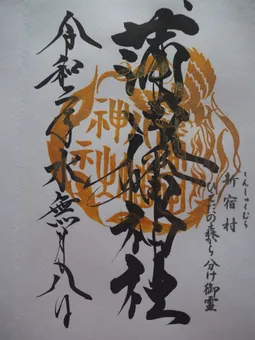 しんしゅくむら
新宿村
ひえだの森ゟ分け御霊
蒲田八幡神社
令和二年水無月八日